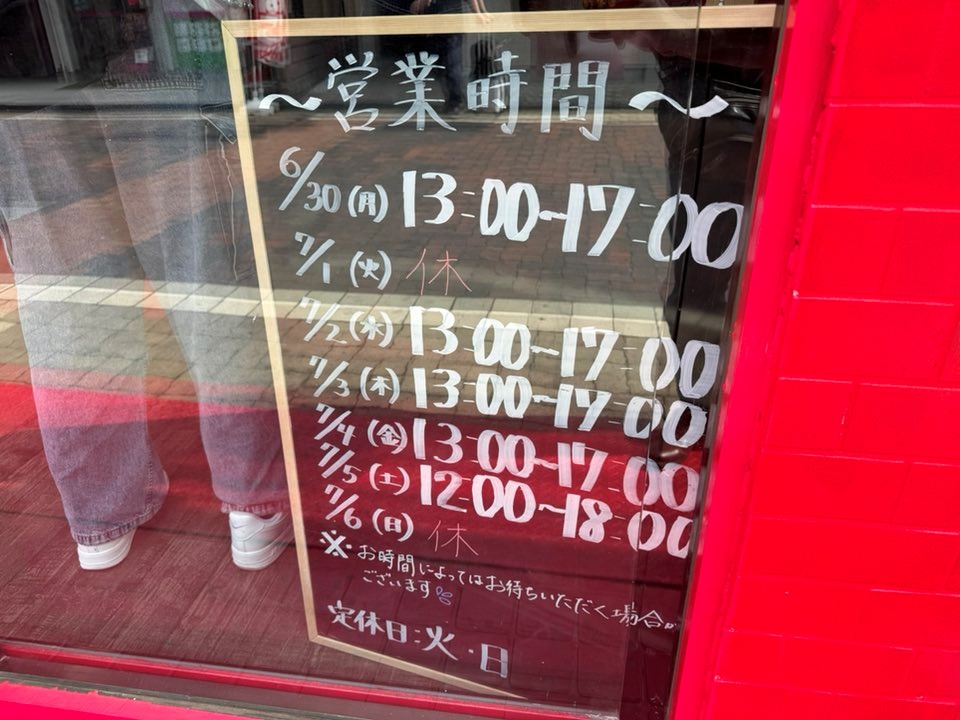 ～営業時間～
6/30(月) 13:00~17:00
7/1(火) 休
7/2(水) 13:00~17:00
7/3(木) 13:00~17:00
7/4(金) 13:00~17:00
7/5(土) 12:00~18:00
7/6(日) 休
※お時間によってはお待ちいただく場合が
ございます
定休日:火・日